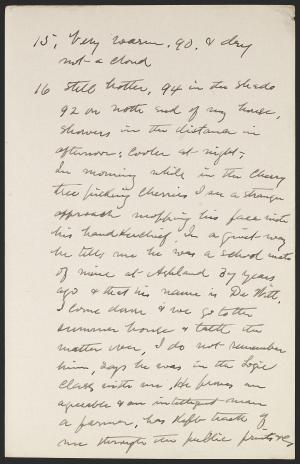 15, Very warm, 90, & dry
not a cloud
16 Still hotter, 94 in the shade
92 on north end of my house,
Showers in the distance in
afternoon; cooler at night,
In morning while in the Cherry
tree picking Cherries I see a stranger
approach mopping his face with
his handkerchief, In a quiet way
he tells me he was a school mate
of mine at Ashland 37 years
ago & that his name is De Witt,
I come down & we go to the
summer house & talk the
matter over, I do not remember
him, says he was in the Logic
Class with me, He proves an
agreeable & an intelligent man
a farmer, has kept track of
me through the public prints,